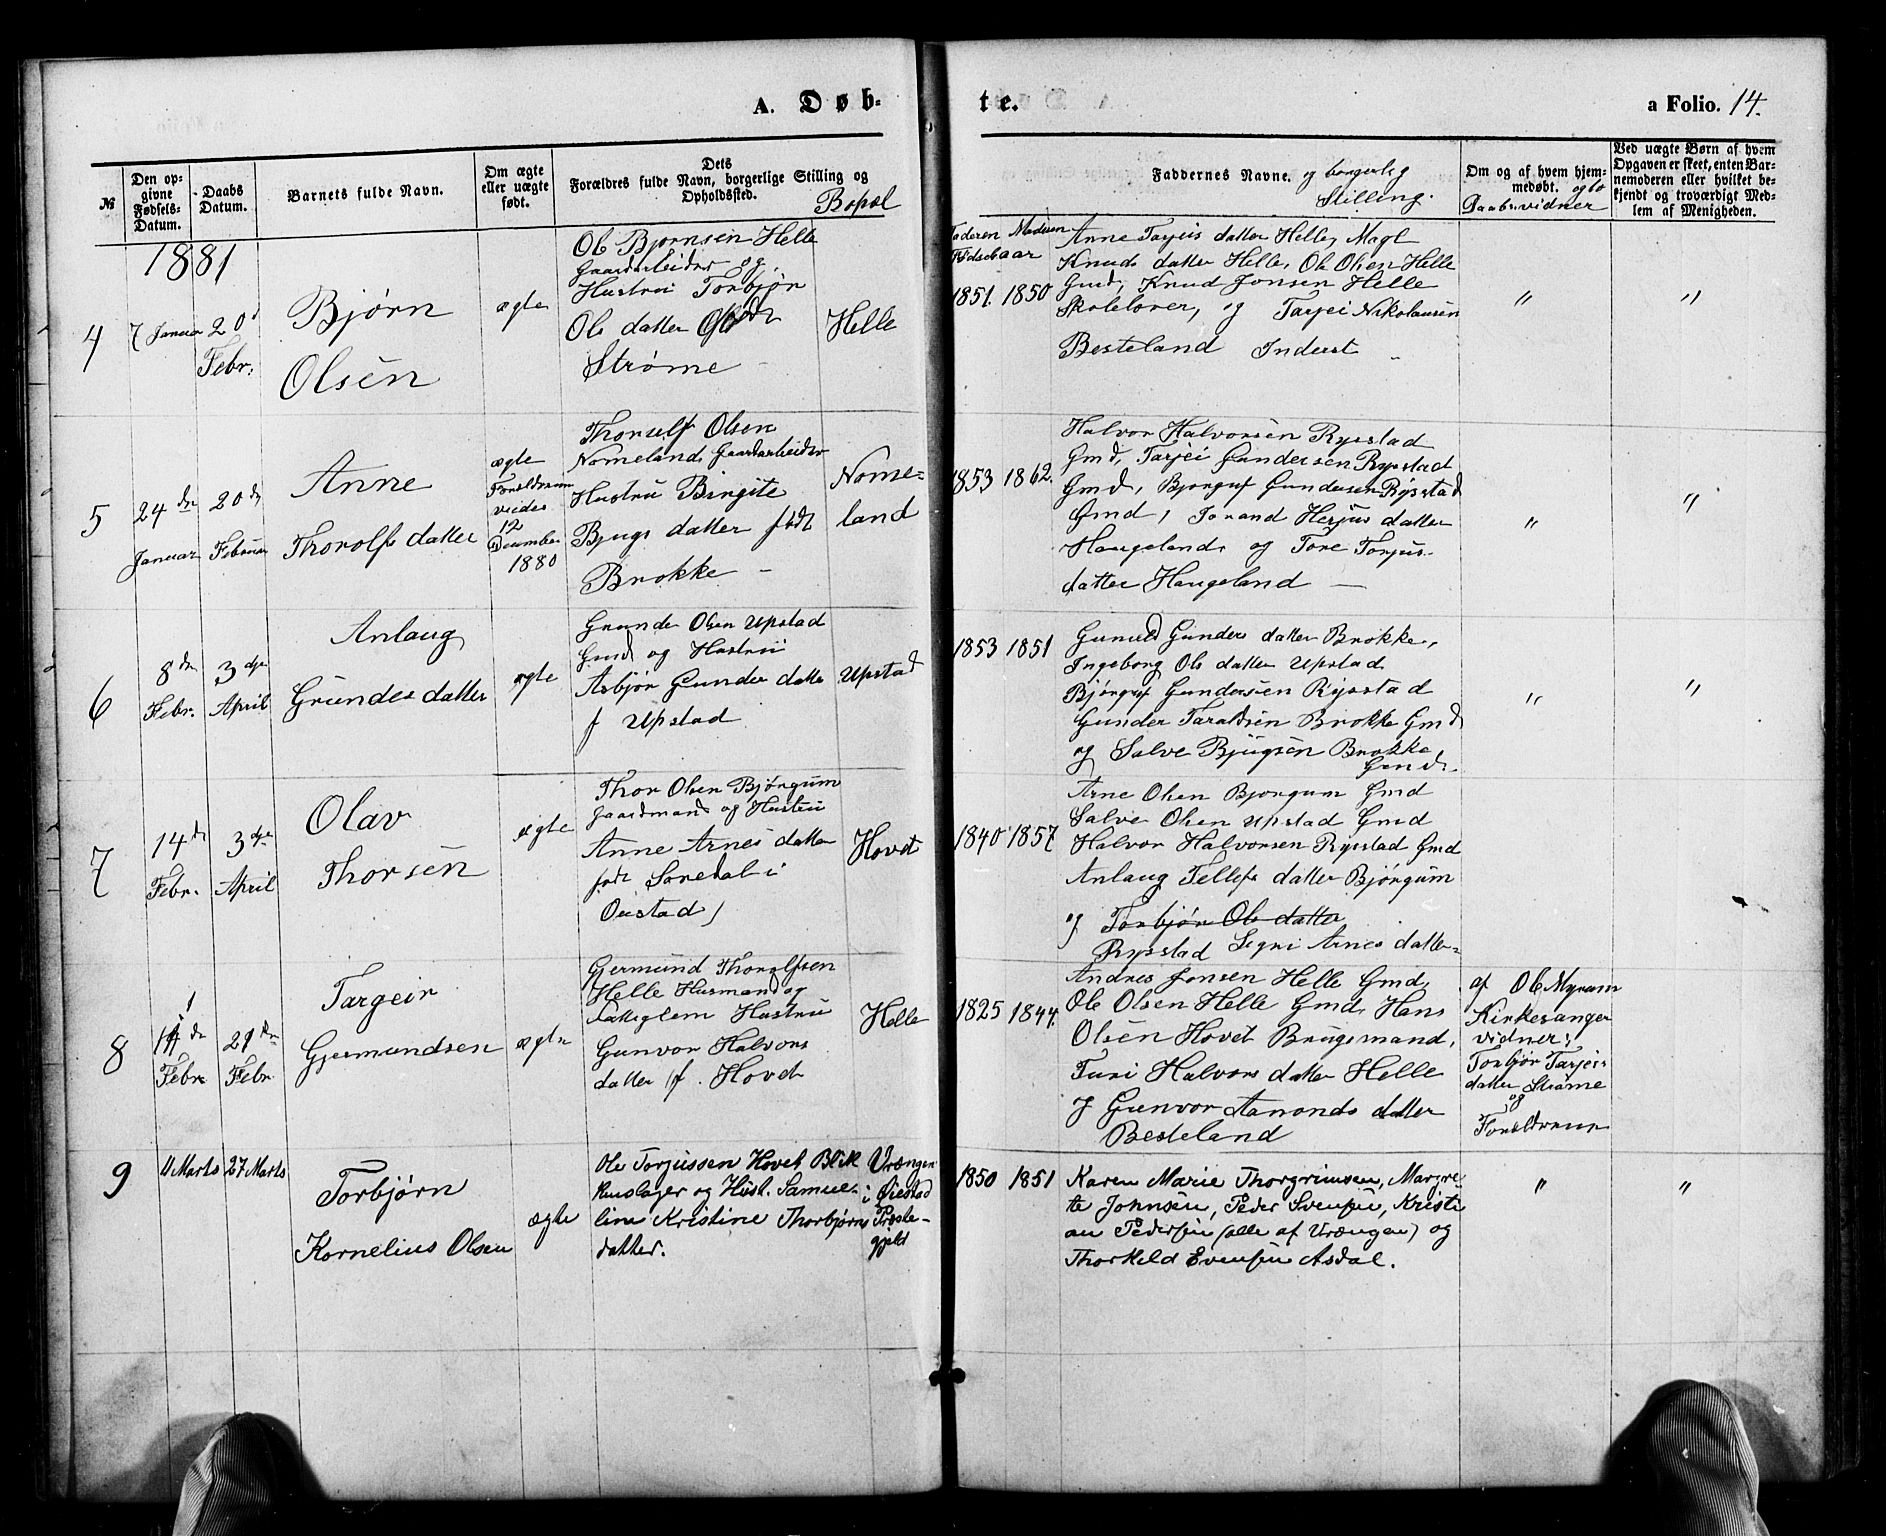 A. Døb-
te.
a Folio. 14.
№
Den op-
givne
Fødsels-
Datum.
Daabs
Datum.
Barnets fulde Navn.
Om ægte
eller uægte
født.
Dets
Forældres fulde Navn, borgerlige Stilling og
Opholdssted.
Bopæl
Faddernes Navne. og borgerlig
Stilling.
Om og af hvem hjem-
medøbt. og to
Daabsvidner
Ved uægte Børn af hvem
Opgaven er skeet, enten Bar-
nemoderen eller hvilket be-
kjendt og troværdigt Med-
lem af Menigheden.
Faderen Moderen
Fødselsaar
1881
4
7 Januar
20d
Febr.
Bjørn
Olsen
ægte
Ole Bjørnsen Helle
Gaardarbeider og
Hustru Torbjør
Ols datter født
Strømme
Helle
1851. 1850
Anne Tarjeis datter Helle, Magl
Knuds datter Helle, Ole Olsen Helle
Gmd, Knud Jonsen Helle
Skolelærer, og Tarjei Nikolausen
Besteland Inderst
"
"
5
24 de
Januar
20 de
Februar
Anne
Thorolfs datter
ægte
Forældrene
viedes
12
December
1880
Thorulf Olsen
Nomeland Gaardarbeider
Hustru Birgite
Bjugs datter født
Brokke
Nome-
land
1853 1862.
Halvor Halvorsen Rysstad
Gmd, Tarjei Gundersen Rysstad
Gmd, Bjørguf Gundersen Rysstad
Gmd, Torand Herjus datter
Haugeland og Tore Torjus-
datter Haugeland
"
"
6
8 de
Febr.
3 dje
April
Anlaug
Grundes datter
ægte
Grunde Olsen Upstad
Gmd og Hustru
Asbjør Gunder datter
f Upstad
Upstad
1853 1851
Gunuld Gunders datter Brokke,
Ingeborg Ols datter Upstad
Bjørguf Gundersen Rysstad
Gunder Taraldsen Brokke Gmd
og Salve Bjugsen Brokke
Gmd.
"
"
7
14 de
Febr.
3 dje
April
Olav
Thorsen
ægte
Thor Olsen Bjørgum
Gaardmand og Hustru
Anne Arnes datter
født Søredal i
Oustad)
Hovet
1840 1857
Arne Olsen Bjørgum Gmd
Salve Olsen Upstad Gmd
Halvor Halvorsen Rysstad Gmd
Anlaug Tellefs datter Bjørgum
og Torbjør Ols datter
Rysstad Signi Arnes datter
8
de
Febr
21 de
Febr
Targeir
Gjermundsen
ægte
Gjermund Thorolfsen
Helle Husmand og
Lægdslem Hustru
Gunvor Halvors
datter f. Hovet
Helle
1825 1844.
Andres Jonsen Helle Gmd,
Ole Olsen Helle Gmd, Hans
Olsen Hovet Brugsmand,
Turi Halvors datter Helle
og Gunvor Aamonds datter
Besteland
af Ole Myrum
Kirkesanger
vidner:
Torbjør Tarjeis
datter Strømme
og
Forældrene
9
11 Marts
27 Marts
Torbjørn
Kornelius Olsen
ægte
Ole Torjussen Hovet Blik
kenslager og Hust. Samue-
line Kristine Thorbjørns
datter.
Vrængen
i Øiestad
Præste-
gjeld
1850 1851
Karen Marie Thorgrimsen, Margre-
te Johnsen, Peder Svensen, Kristi
an Pedersen (alle af Vrængen) og
Thorkeld Evensen Asdal.
"
"